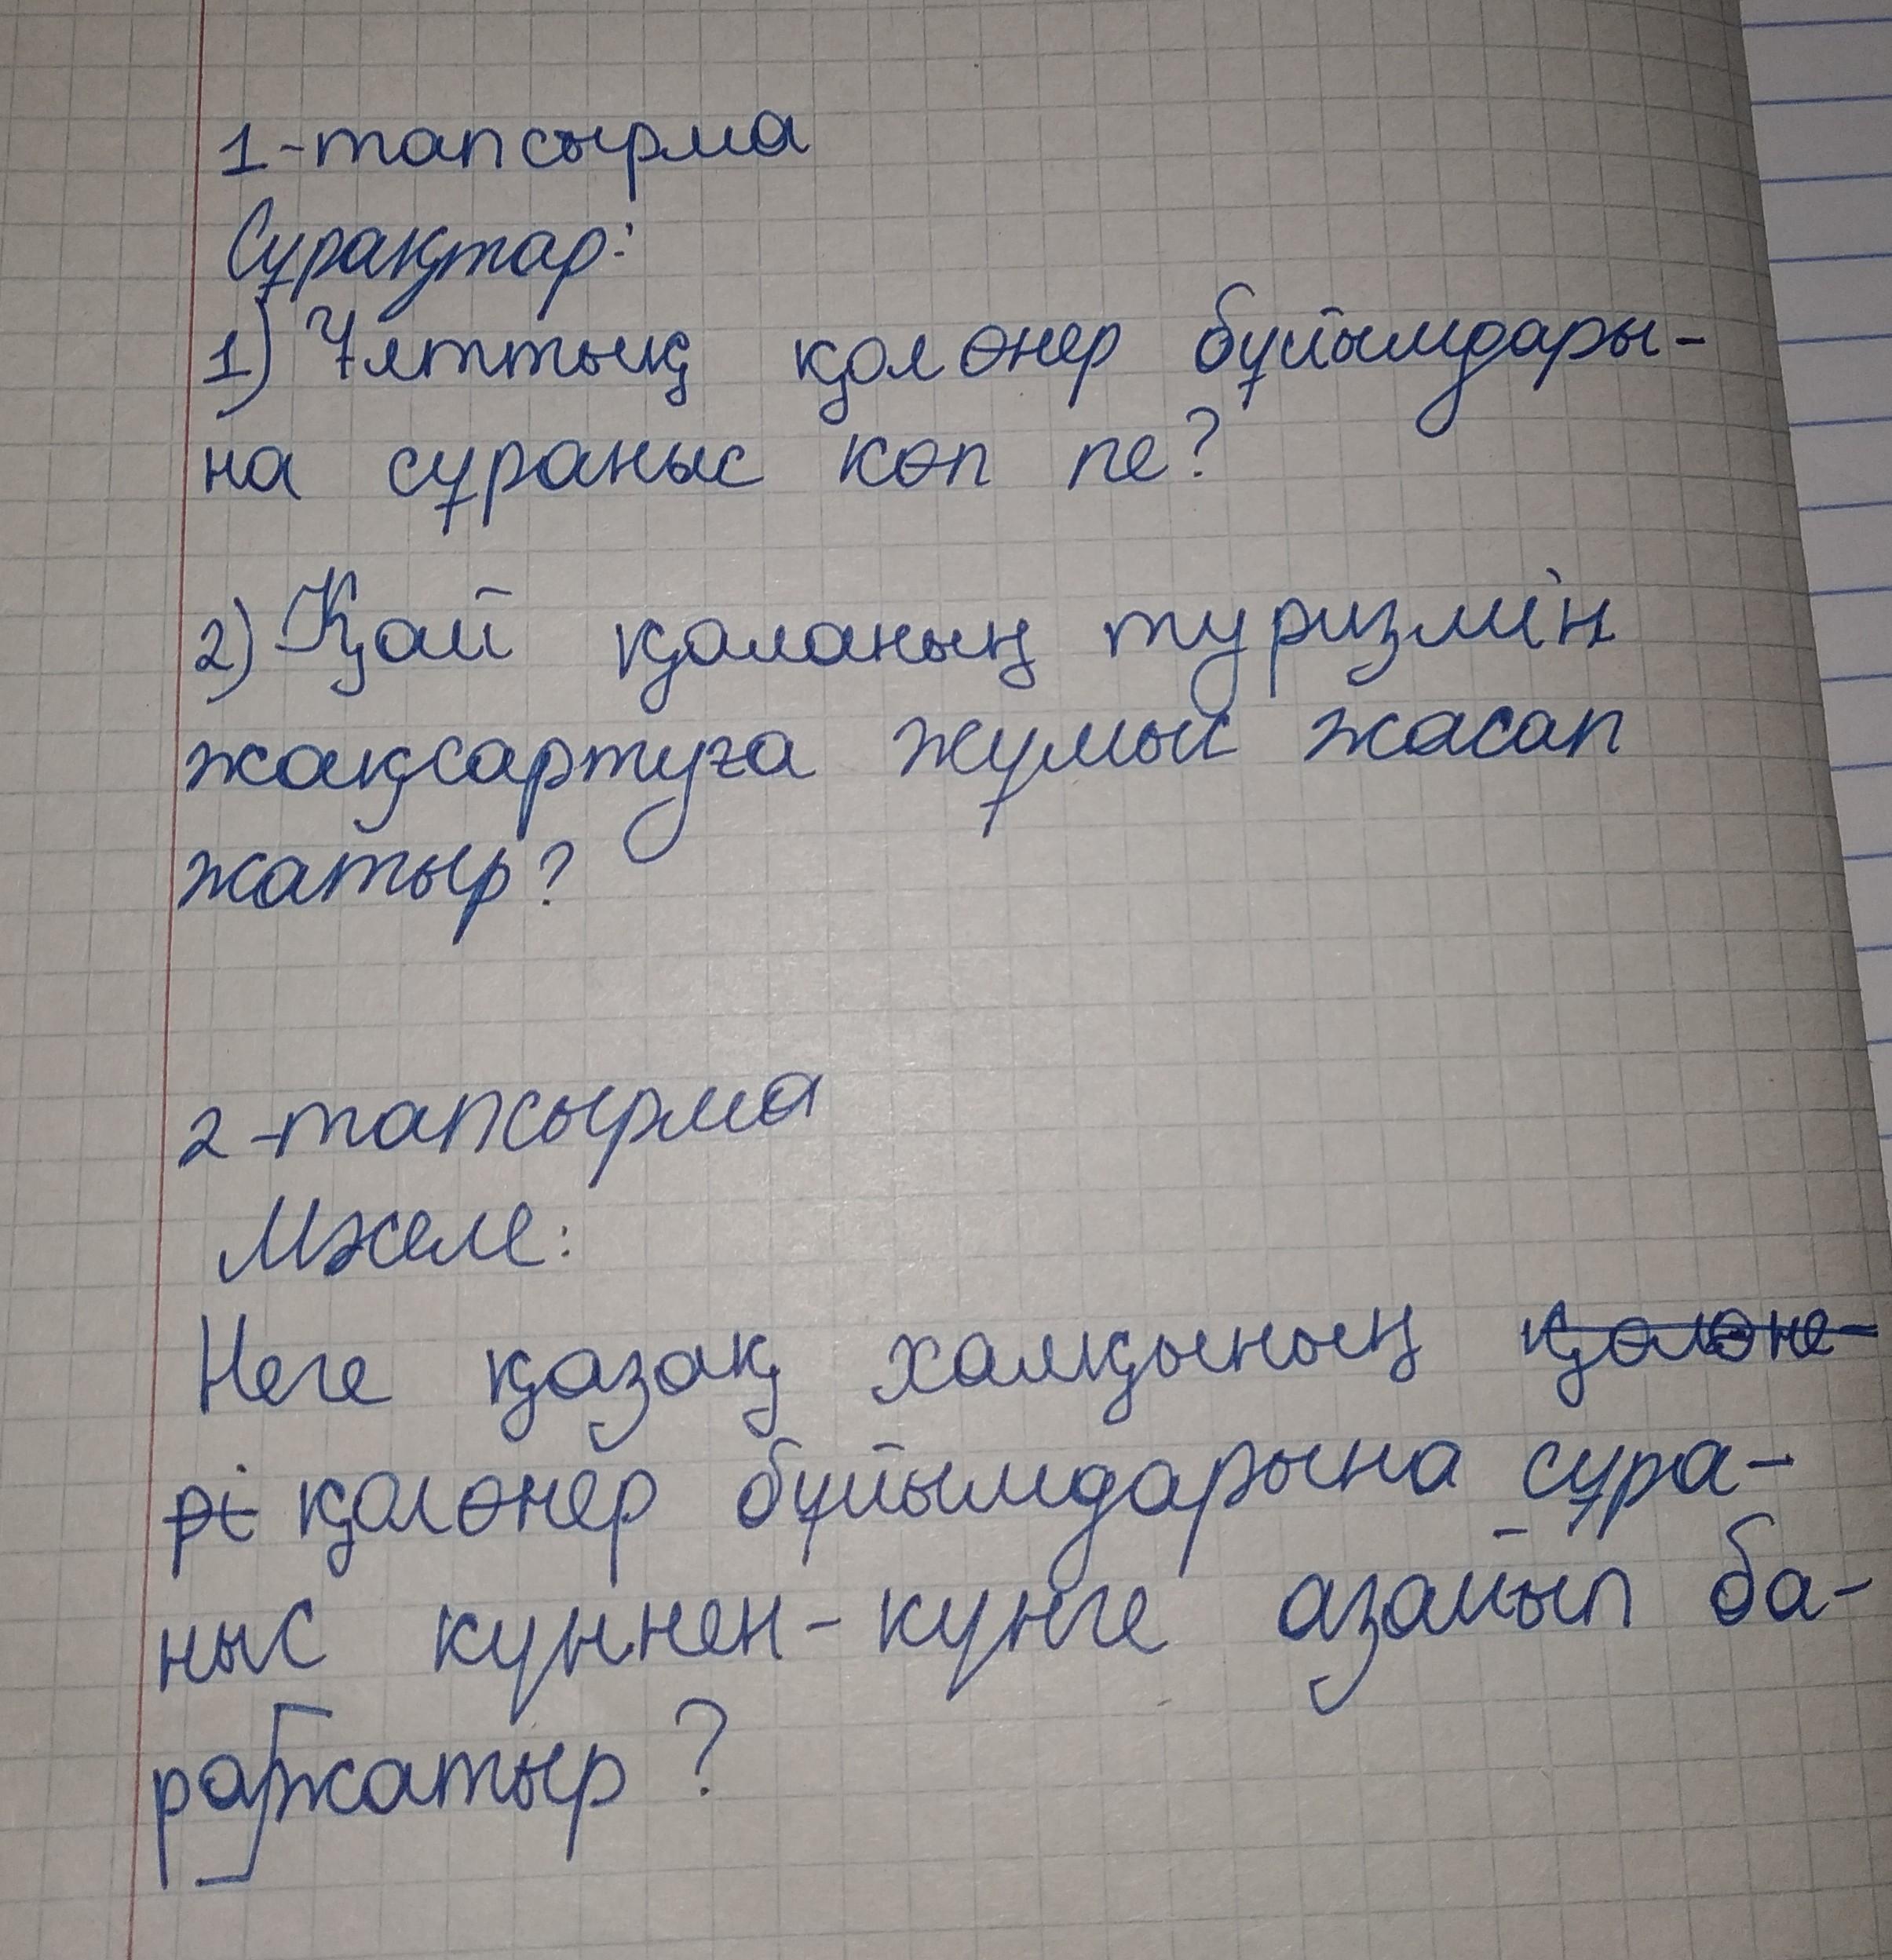 1-тапсырма
Сұрақтар:
1) Ұлттық қолөнер бұйымдары-
на сұраныс көп пе?
2) Қай қаланың туризмін
жақсартуға жұмыс жасап
жатыр?
2-тапсырма
Мәселе:
Неге қазақ халқының қолөне-
рі қолөнер бұйымдарына сұра-
ныс күннен-күнге азайып ба-
ра жатыр?